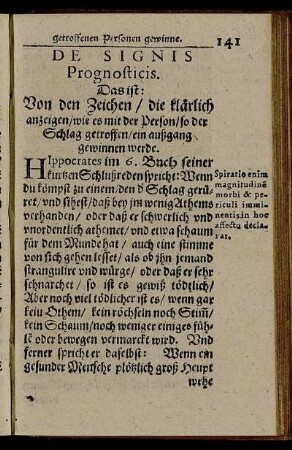 getroffenen Personen gewinne. 141
DE SIGNIS
Prognosticis.
Das ist:
Von den Zeichen / die klärlich
anzeigen / wie es mit der Person / so der
Schlag getroffen / ein außgang
gewinnen werde.
HIppocrates im 6. Buch seiner
kurtzen Schlußreden spricht: Wenn
du kömpst zu einem / den d' Schlag gerü-
ret / vnd sihest / daß bey jm wenig Athems
verhanden / oder daß er schwerlich vnd
vnordentlich athemet / vnd etwa schaum
für dem Munde hat / auch eine stimme
von sich gehen lesset / als ob jhn jemand
strangulire vnd würge / oder daß er sehr
schnarchet / so ist es gewiß tödtlich /
Aber noch viel tödlicher ist es / wenn gar
kein Othem / kein röchseln noch Stim̄ /
kein Schaum / noch weniger einiges füh-
lē oder bewegen vermarckt wird. Vnd
ferner spricht er daselbst: Wenn ein
gesunder Mensche plötzlich groß Heupt
wehe
Spiratio enim
magnitudinē
morbi & pe-
riculi immi-
nentis in hoc
affectu decla-
rat.